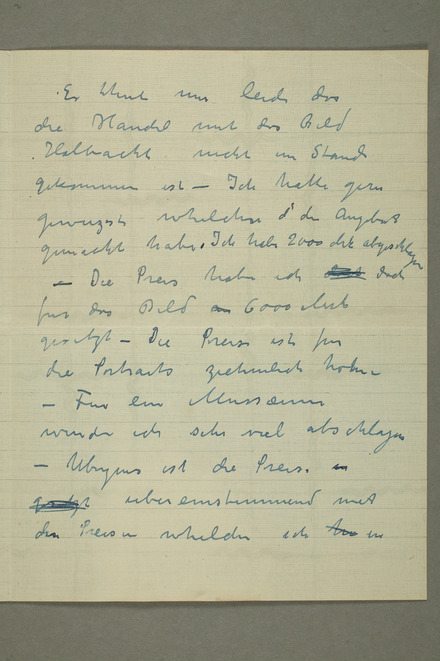 Es thut mir leid das
die Handel mit das Bild
nicht im Stand
gekommen ist — Ich hatte gern
whelcher Angebot
gemacht habe. Ich habe 2000 abgeschlagen
— Die Preis habe ich doch
fur das Bild 6000 Mark
gesetzt — Die Preise ist fur
die Portraits ziehmlich hohe
— Fur ein Mussaeum
wurde ich sehr viel abschlagen
— Ubrigens ist die Preis.
ubereinstimmend mit
den Preisen whelche ich in